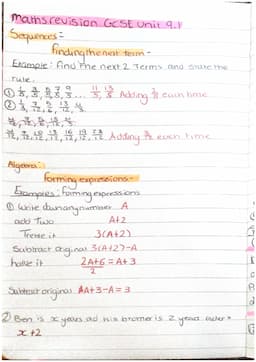 maths revision GCSE Unit 9.1
Sequences:-
finding the next term -
Example: find the next 2 Terms and state the
rule.
① 1/5, 3/5, 5/5, 7/5, 9/5 ... 11/5, 13/5 Adding 2/5 each time
Adding 3/12 each time.
Algebra:
forming expressions:-
Examples: forming expressions
① Write down any number A
add Two A+2
Treble it 3(A+2)
Subtract original 3(A+2)-A
halve it 2A+6/2 = A+3
Subtract original A+3-A = 3
② Ben is x years old his brother is 2 years older
x+2